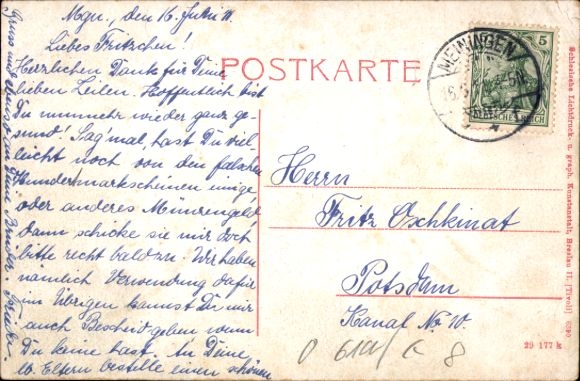 Mgn., den 16. Juli 11.
Liebes Fritzchen!
Herzlichen Dank für Deine
lieben Zeilen. Hoffentlich bist
Du nunmehr wieder ganz ge-
sund! Sag' mal hast Du viel-
leicht noch von den falschen
Hundertmarkscheinen einige
oder anderes Münzengeld
dann schicke sie mir doch
bitte recht bald zu. Wir haben
nämlich Verwendung dafür
im Übrigen kannst Du mir
auch Bescheid geben wenn
Du keine hast. An Deine
lb. Eltern bestelle einen schönen
Gruss und ebenso an Deine Brüder.
POSTKARTE
MEININGEN
5
DEUTSCHES REICH
Herrn
Fritz Oschkinat
Potsdam
Kanal No 10.
29 177 k
Schlesische Lichtdruck- u. graph. Kunstanstalt, Breslau II. [Tivoli] 6390